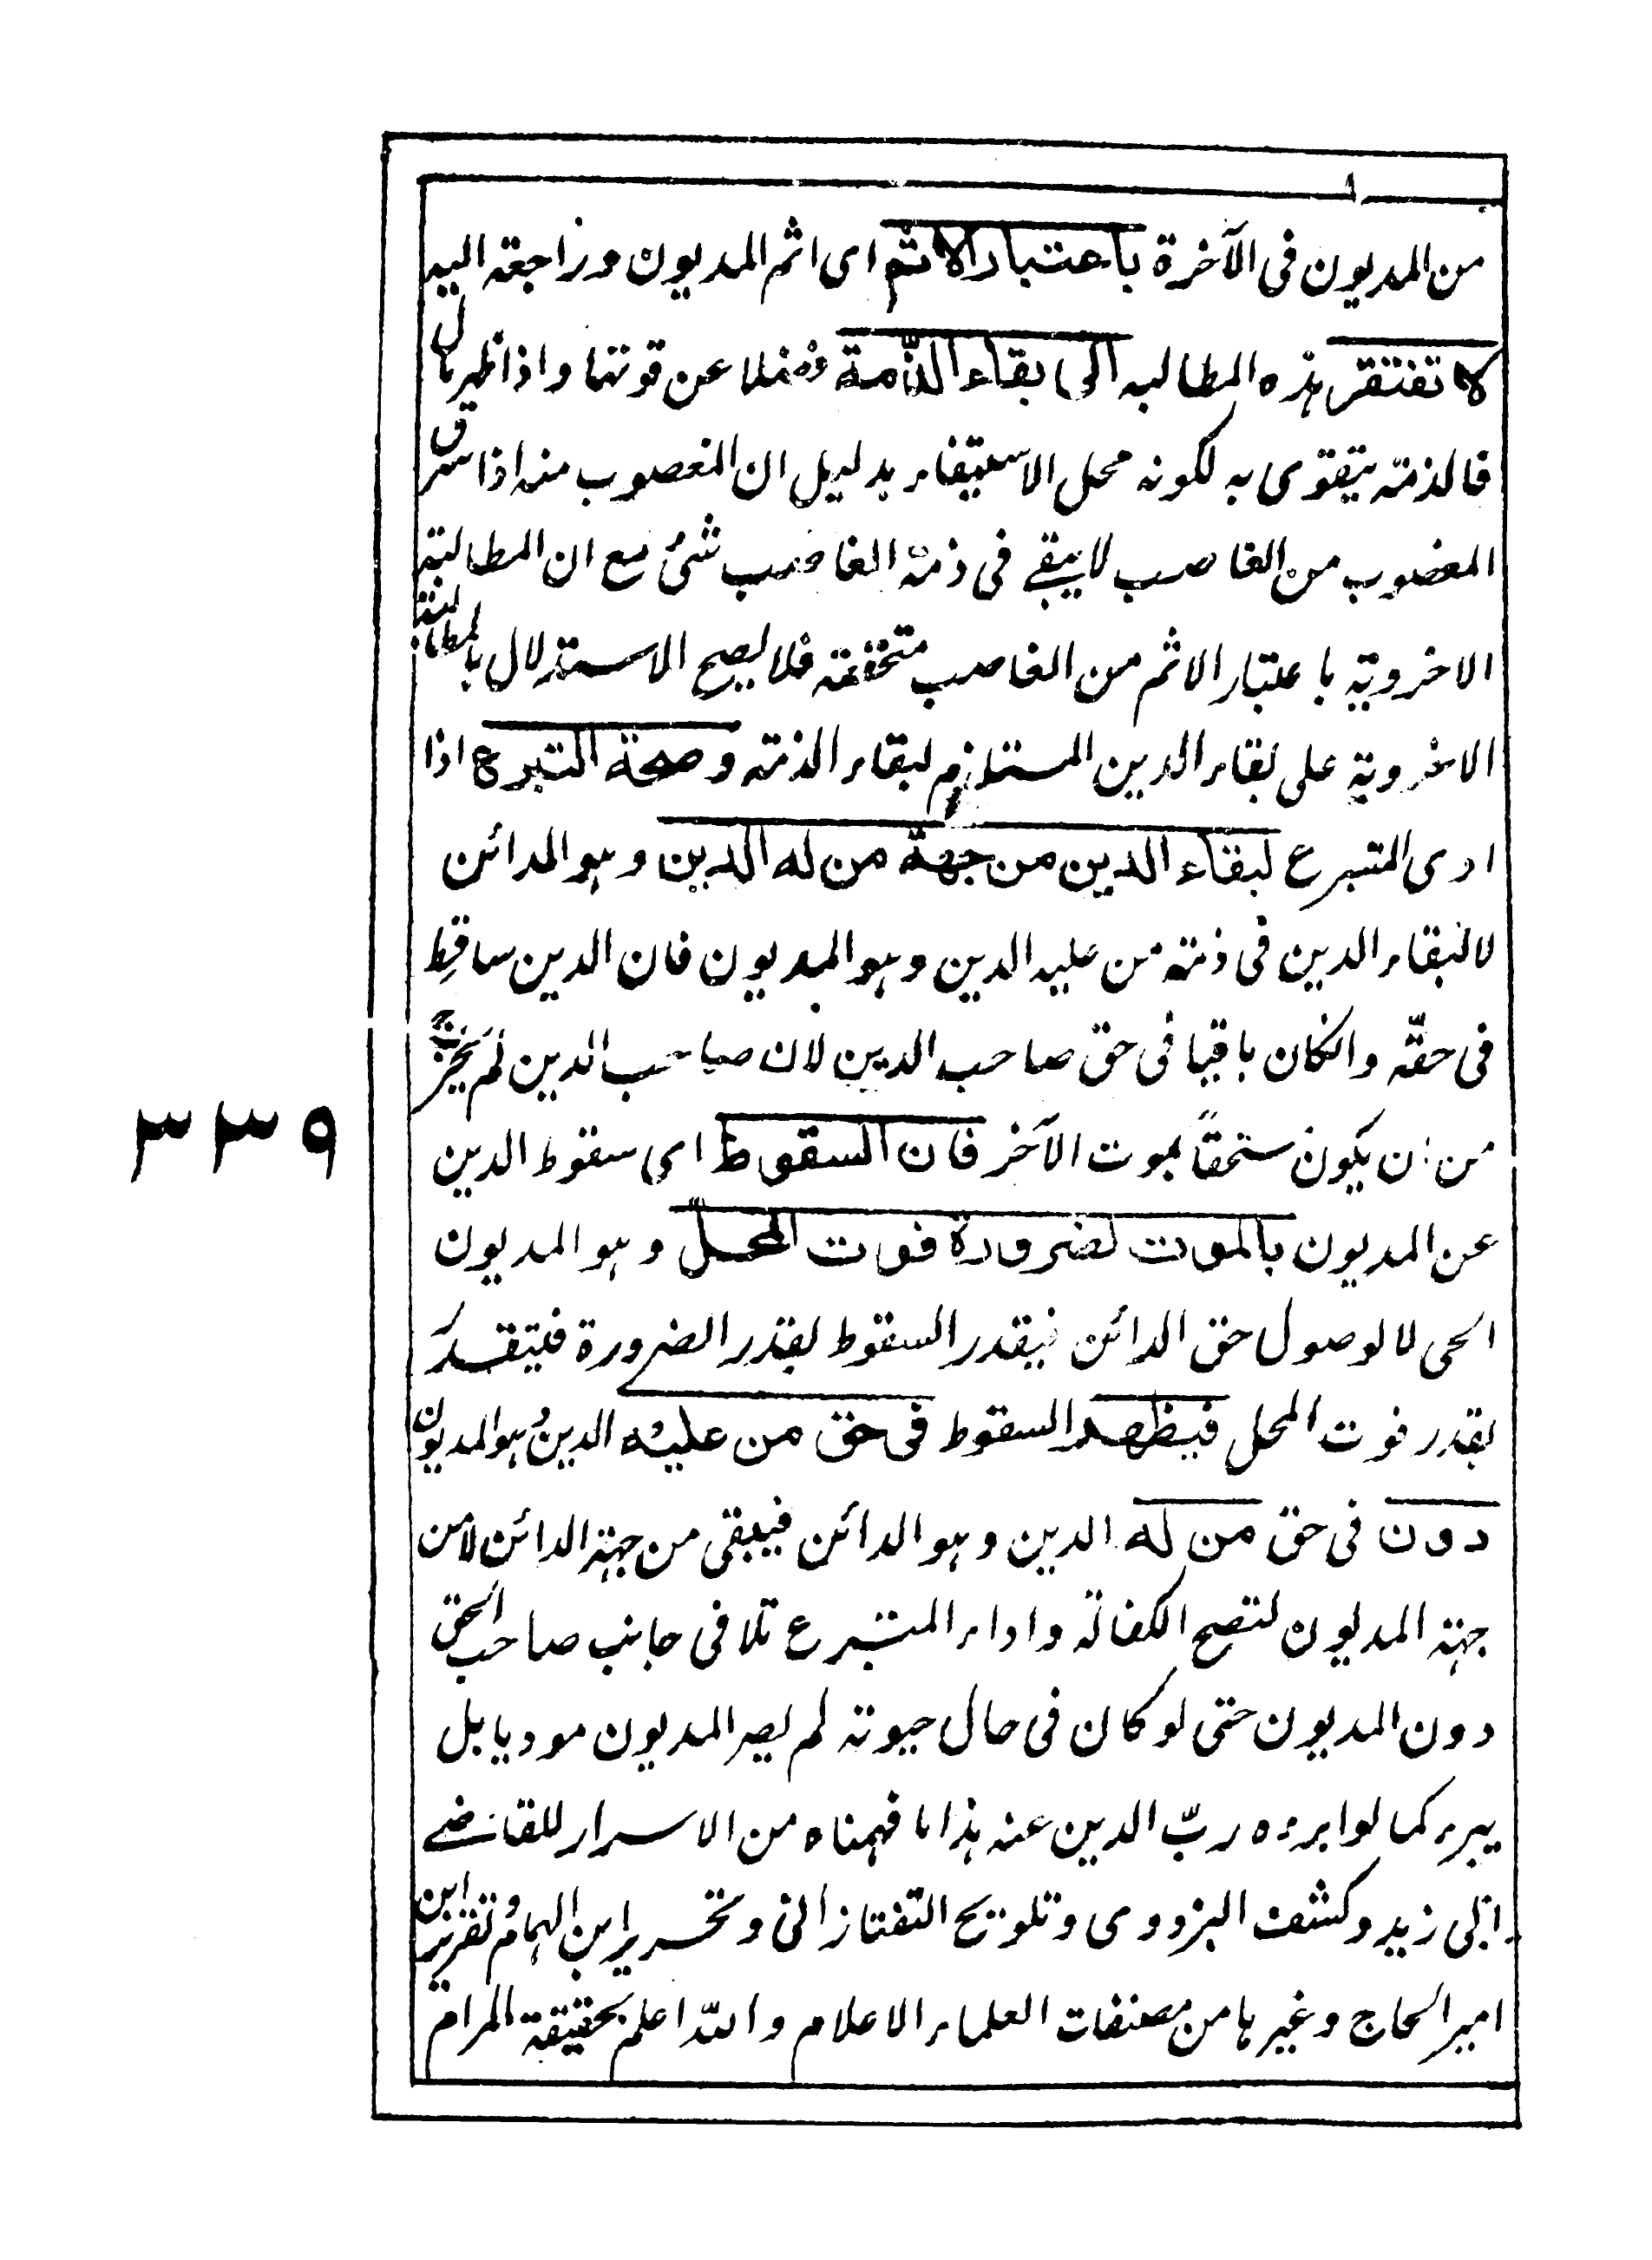 من المديون فى الآخرة باعتبار الاثم اى اثم المديون وزراجعة اليه
لا تفتقر هذه المطالبه الى بقاء الذّمة فضلا عن قوتها واذا ظهر مال
فالذمته يتقوى به لكونه محل الاستيفاء بدليل ان المغصوب منه اذا سرق
المغضوب من الغاصب لا يبقے فى ذمة الغاصب شئ مع ان المطالبته
الاخروية باعتبار الاثم من الغاصب متحققه فلا يصح الاستدلال بالمطالبته
الاخروية على بقاء الدين المستلزم لبقاء الذمته وصحة التبرع اذا
ادى المتبرع لبقاء الدين من جهة من له الدين وهو المدائن
لا لبقاء الدين فى ذمته من عليه الدين وهو المديون فان الدين ساقط
فى حقّه وانكان باقيا فى حق صاحب الدين لان صاحب الدين لم يخرج
من ان يكون ستحقاً بموت الآخر فان السقوط اى سقوط الدين
٣٣٩
عن المديون بالموت لضرورة فوت المحلّ وهو المديون
الحى لا لوصول حق الدائن فيقدر السقوط بقدر الضرورة فيتقدر
بقدر فوت المحل فيظهر السقوط فى حق من عليه الدين وهو المديون
دون فى حق من له الدين وهو الدائن فيبقى من جهة الدائن لا من
جهته المديون لتصح الكفالة واداء المتبرع تلافى جانب صاحب الحق
دون المديون حتى لو كان فى حال حيوته لم يصر المديون موديا بل
يبرء كما لو ابرءه ربّ الدين عنه هذا ما فهمناه من الاسرار للقاضے
ابى زيد وكشف البزدوى وتلويح التفتازانى وتحرير ابن الهمام وتقرير ابن
امير الحاج وغيرها من مصنفات العلماء الاعلام والله اعلم بحقيقة المرام